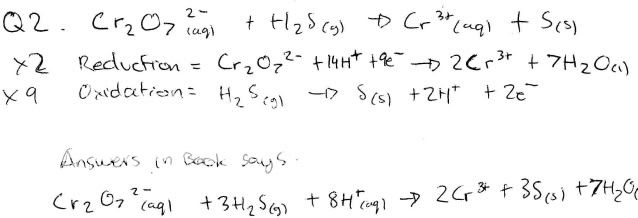 Q2. Cr₂O₇²⁻(aq) + H₂S(g) → Cr³⁺(aq) + S(s)
×2 Reduction = Cr₂O₇²⁻ + 14H⁺ + 9e⁻ → 2Cr³⁺ + 7H₂O(l)
×9 Oxidation = H₂S(g) → S(s) + 2H⁺ + 2e⁻
Answers in Book says.
Cr₂O₇²⁻(aq) + 3H₂S(g) + 8H⁺(aq) → 2Cr³⁺ + 3S(s) + 7H₂O(